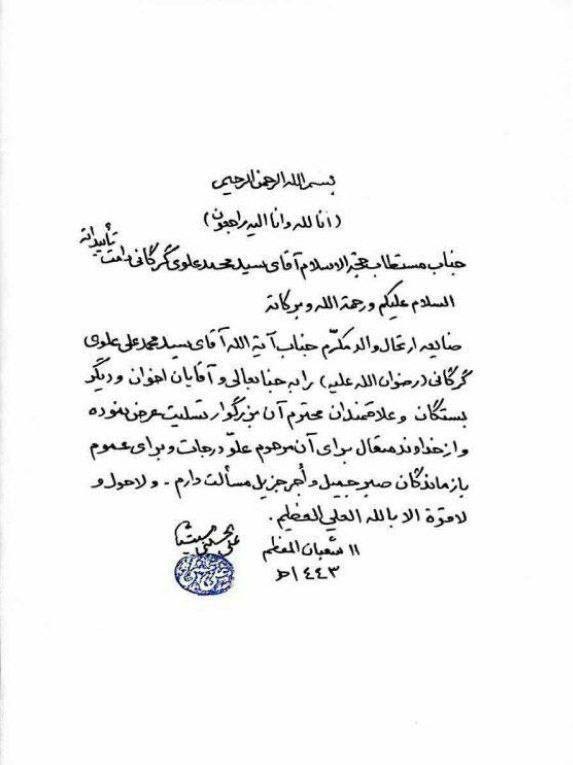 بسم الله الرحمن الرحیم
(انا لله وانا الیه راجعون)
جناب مستطاب حجة الاسلام آقای سید محمد علوی گرگانی دامت تأییداته
السلام علیکم ورحمة الله وبرکاته
ضایعه ارتحال والد مکرّم جناب آیة الله آقای سید محمد علی علوی
گرگانی (رضوان الله علیه) را به جنابعالی و آقایان اخوان و دیگر
بستگان و علاقمندان محترم آن بزرگوار تسلیت عرض نموده
و از خداوند متعال برای آن مرحوم علوّ درجات و برای عموم
بازماندگان صبر جمیل و أجر جزیل مسألت دارم - ولاحول و
لا قوة الا بالله العلي العظیم .
١١ شعبان المعظم
١٤٤٣ھ
علی الحسینی